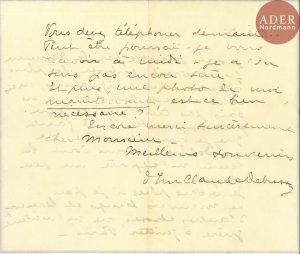 ADER
Nordmann
Vous devez téléphoner demain...
Peut être pourrai-je vous
à midi je n'en
suis pas encore sûre
Et puis une photo de moi
maintenant est ce bien
nécessaire ?
Encore merci sincèrement
cher Monsieur
Meilleurs souvenirs
Claude Debussy